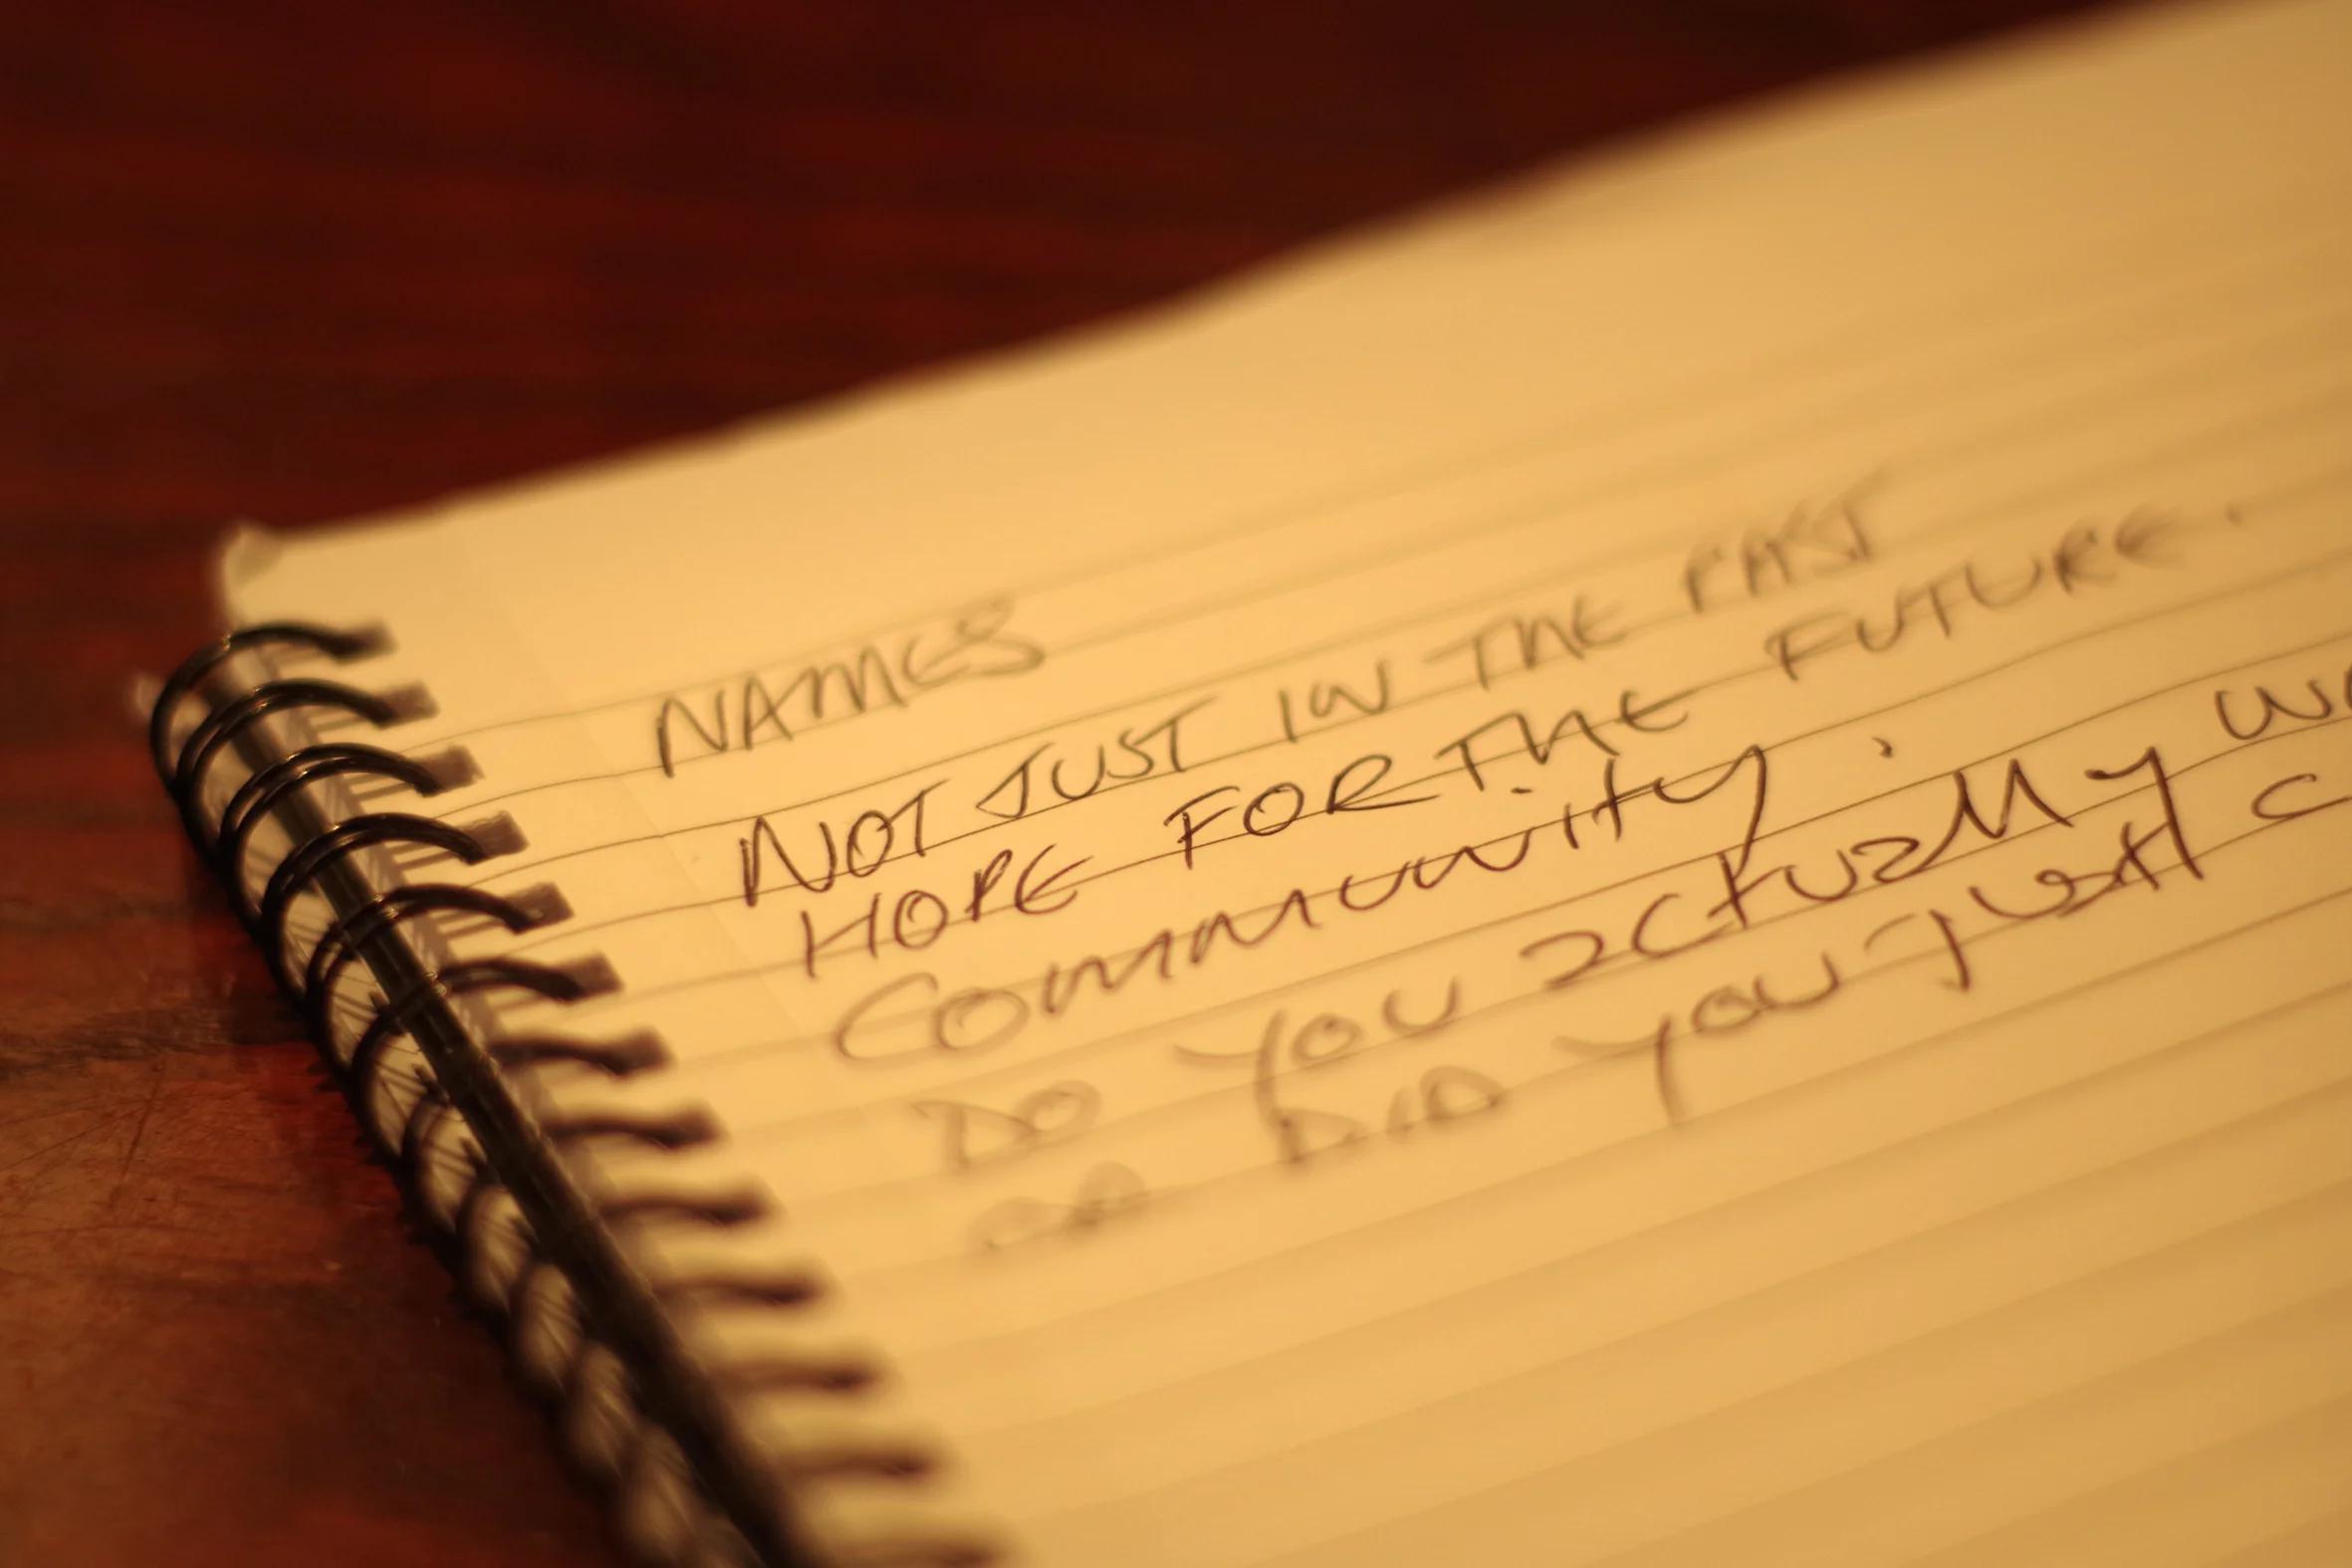 NAMES
NOT JUST IN THE PAST
HOPE FOR THE FUTURE.
Community.
DO YOU actually
OR DID YOU just